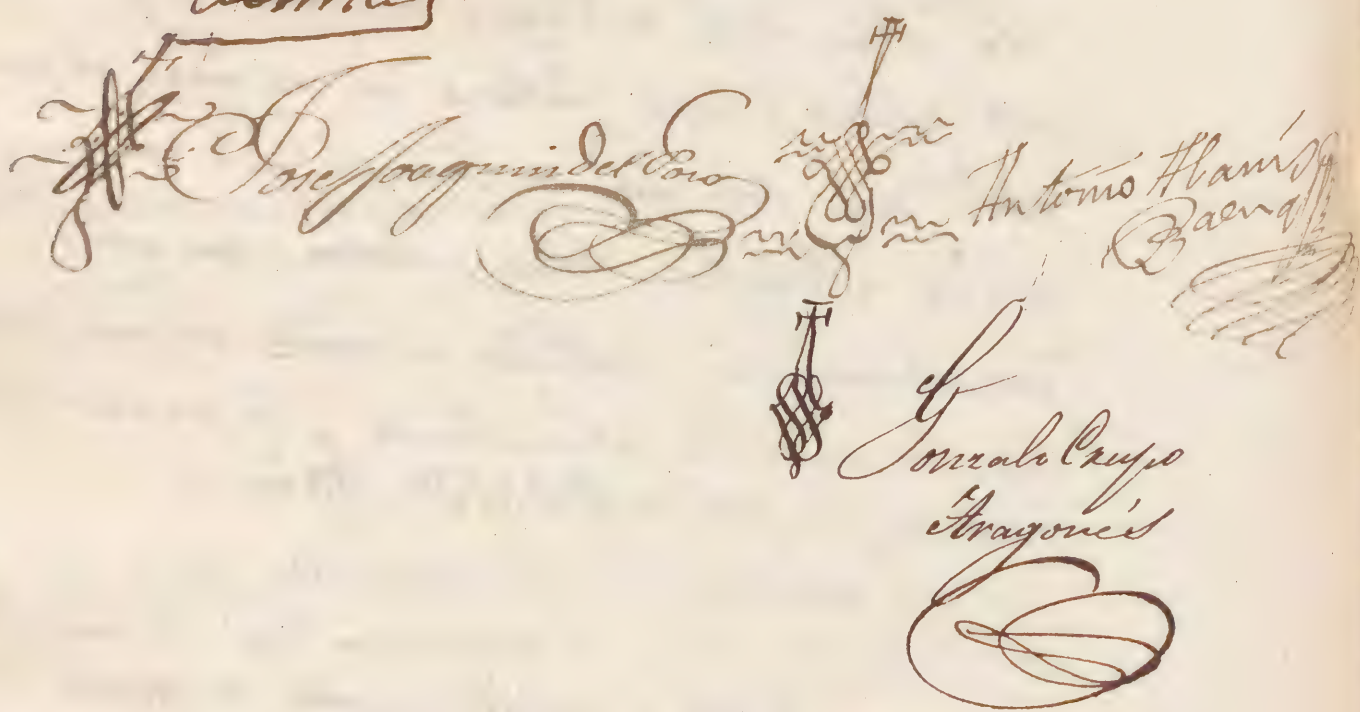 Jose Joaquin del Toro
Antonio Alaniz
Baena
Gonzalo Crespo
Aragonés